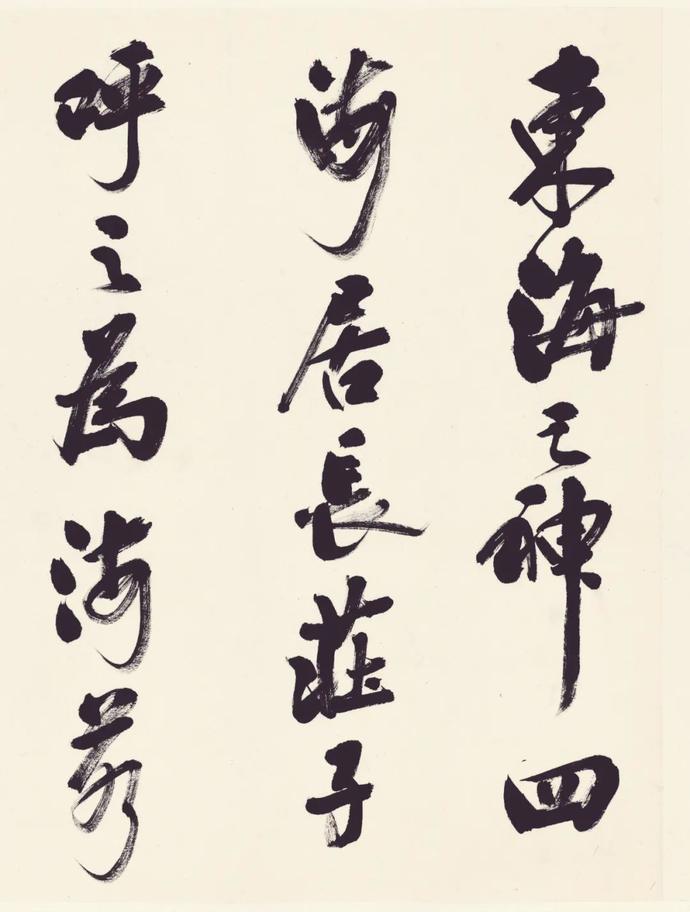 東海之神四
海居長莊子
呼之為海若